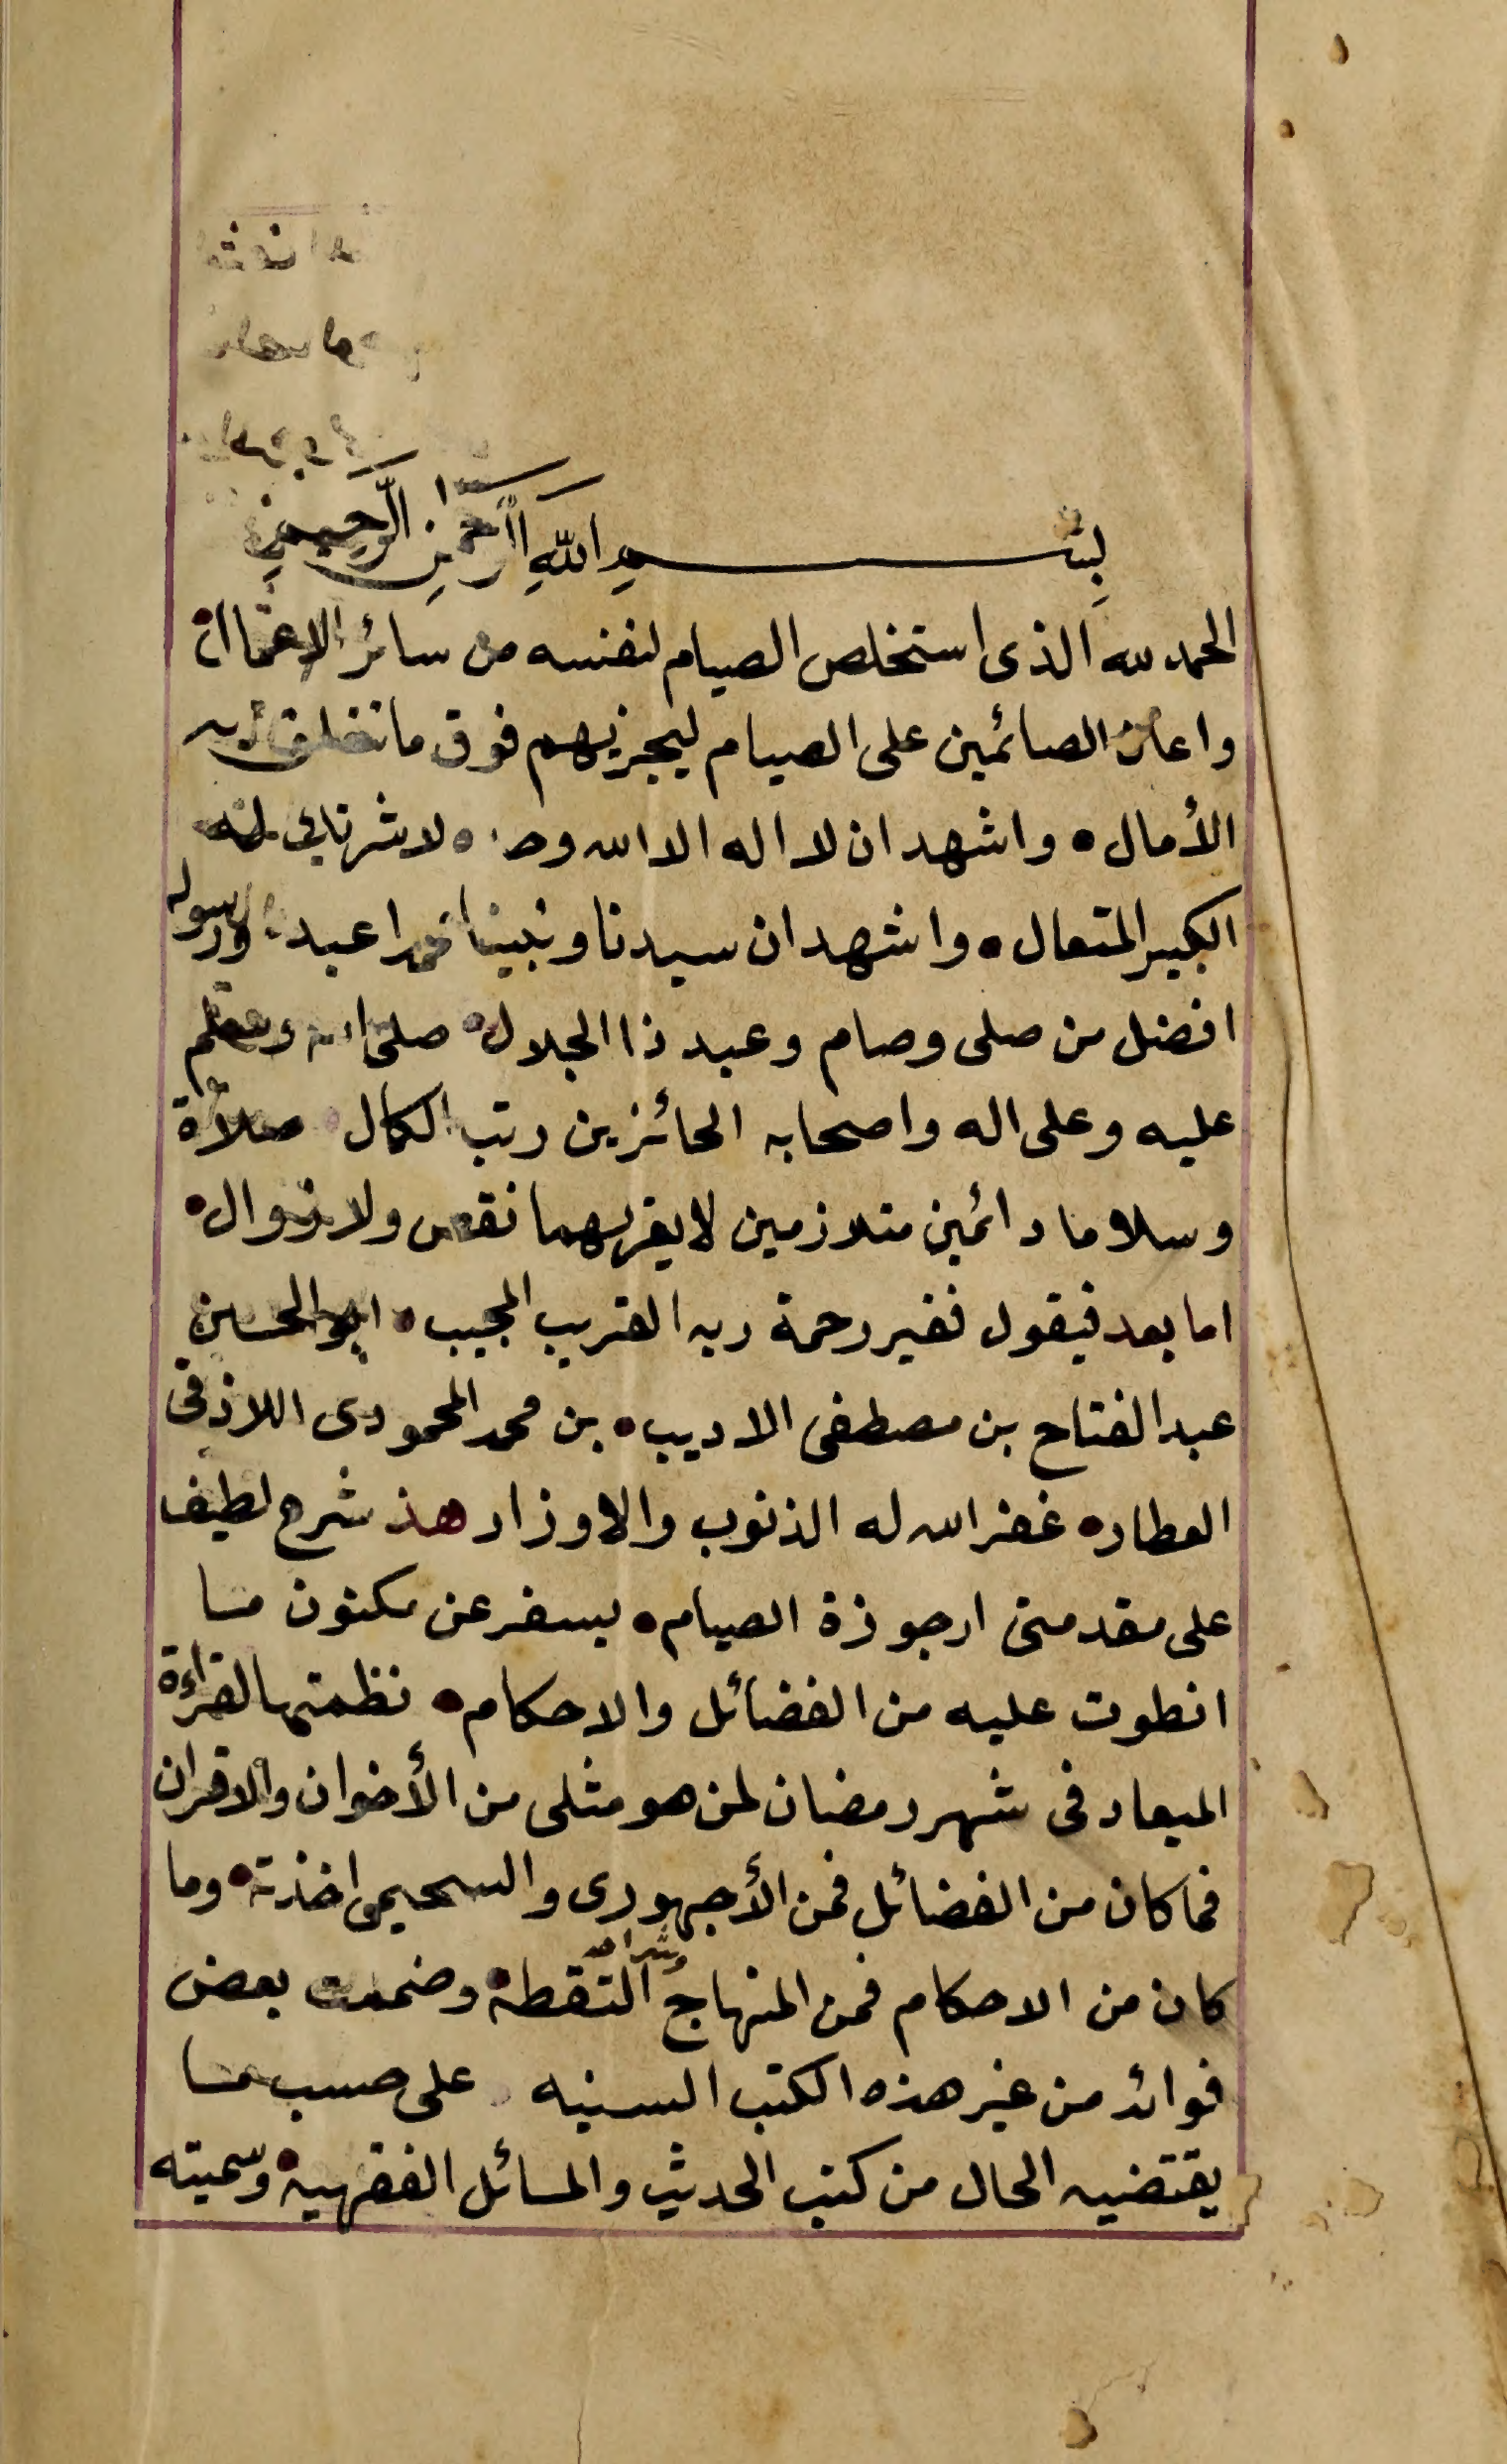 بسم الله الرحمن الرحيم
الحمد لله الذى استخلص الصيام لنفسه من سائر الاعمال
واعان الصائمين على الصيام ليجزيهم فوق ما تخلق به
الأمال ٥ واشهد ان لا اله الا الله وحده لا شريك له
الكبير المتعال ٥ واشهد ان سيدنا ونبينا محمدا عبده ورسوله
افضل من صلى وصام وعبد ذا الجلال صلى الله وسلم
عليه وعلى اله واصحابه الحائزين رتب الكمال صلاة
وسلاما دائمين متلازمين لا يقربهما نقص ولا زوال
اما بعد فيقول فقير رحمة ربه القريب المجيب ابو الحسن
عبد الفتاح بن مصطفى الاديب بن محمد المحمودى اللاذقى
العطار ٥ غفر الله له الذنوب والاوزار هذ شرح لطيف
على مقدمتى ارجوزة الصيام ٥ يسفر عن مكنون ما
انطوت عليه من الفضائل والاحكام نظمتها لقراءة
الميعاد فى شهر رمضان لمن هو مثلى من الأخوان والاقران
فما كان من الفضائل فمن الأجهورى والسحيمى اخذته وما
كان من الاحكام فمن المنهاج وشراحه التقطه وضممت بعض
فوائد من غير هذه الكتب السنيه على حسب ما
يقتضيه الحال من كتب الحديث والمسائل الفقهيه وسميته